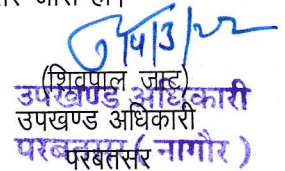 जारी हो।
14/3/22
(शिवपाल जाट)
उपखण्ड अधिकारी
उपखण्ड अधिकारी
परबतसर (नागौर)
परबतसर